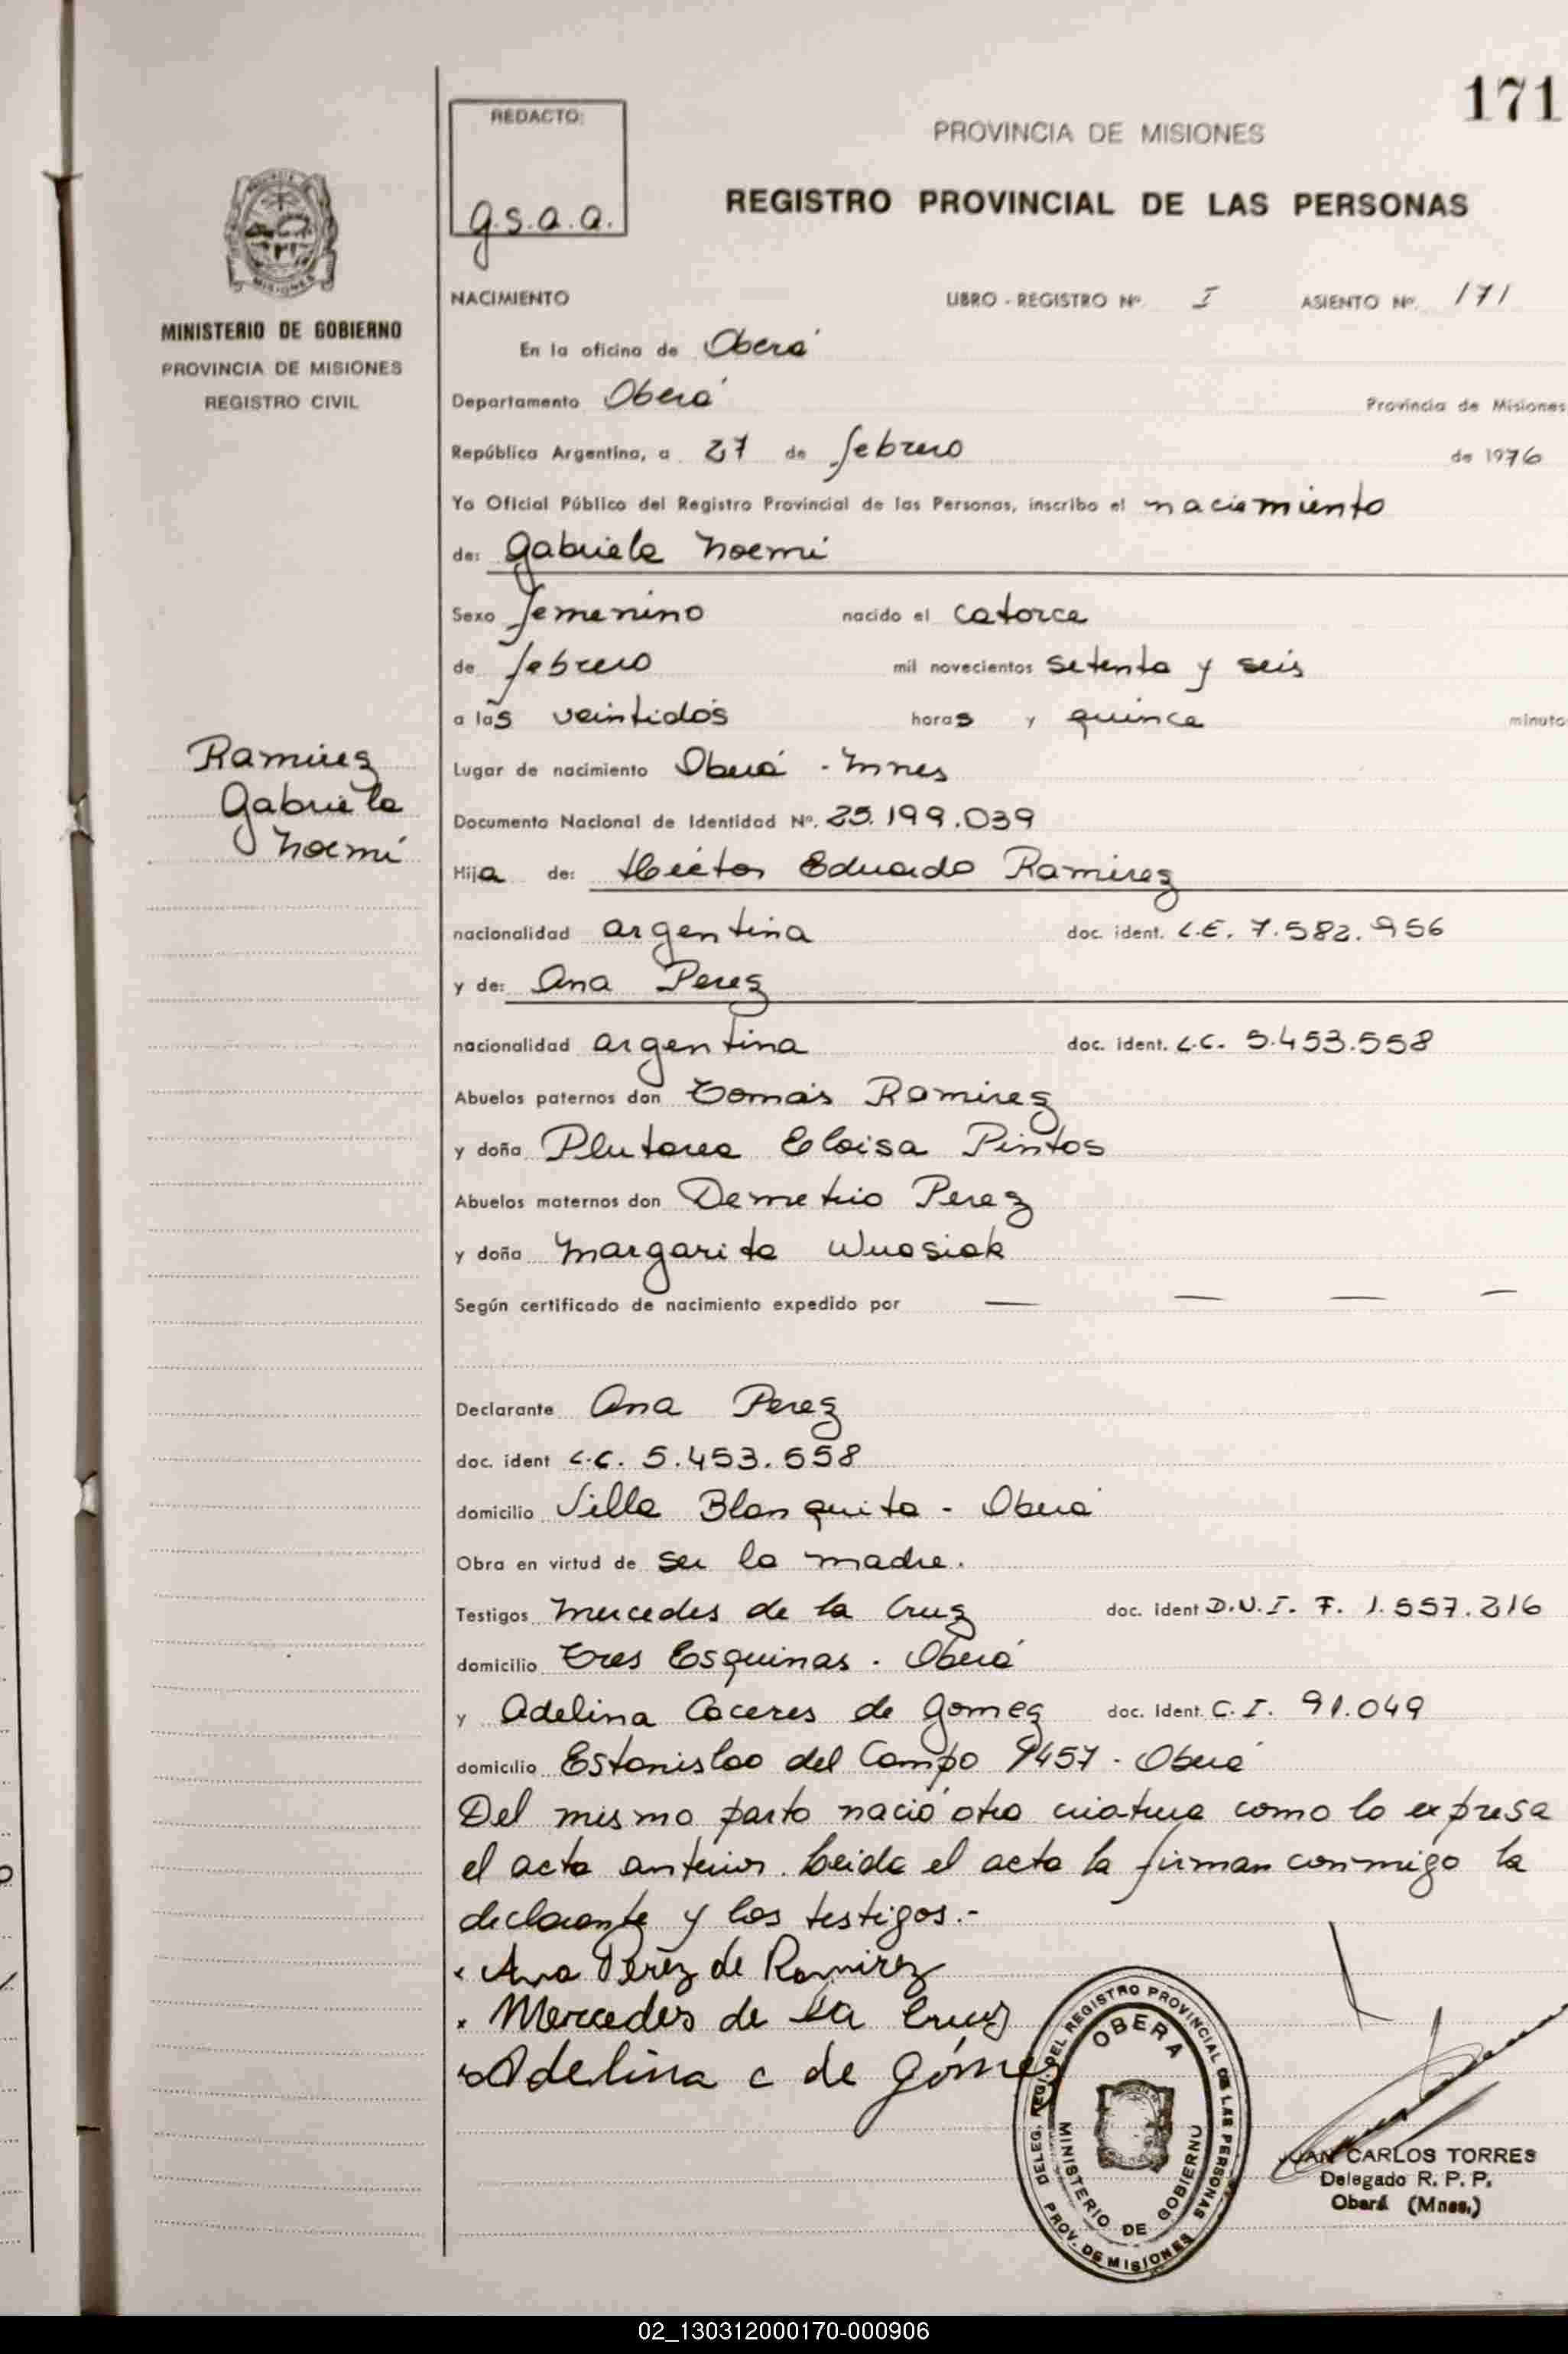 171
REDACTO:
g.s.a.a.
PROVINCIA DE MISIONES
REGISTRO PROVINCIAL DE LAS PERSONAS
MINISTERIO DE GOBIERNO
PROVINCIA DE MISIONES
REGISTRO CIVIL
NACIMIENTO LIBRO - REGISTRO Nº. I ASIENTO Nº. 171
En la oficina de Oberá
Departamento Oberá Provincia de Misiones
República Argentina, a 27 de febrero de 1976
Yo Oficial Público del Registro Provincial de las Personas, inscribo el naciemiento
de: Gabriela Noemí
Sexo femenino nacido el catorce
de febrero mil novecientos setenta y seis
a las veintidós horas y quince minuto
Ramirez
Gabriela
Noemí
Lugar de nacimiento Oberá - Mnes
Documento Nacional de Identidad Nº. 25.199.039
Hija de: Héctor Eduardo Ramirez
nacionalidad argentina doc. ident. L.E. 7.582.956
y de: Ana Perez
nacionalidad argentina doc. ident. L.C. 5.453.558
Abuelos paternos don Tomás Ramirez
y doña Plutarca Eloisa Pintos
Abuelos maternos don Demetrio Perez
y doña Margarita
Según certificado de nacimiento expedido por — — — —
Declarante Ana Perez
doc. ident L.C. 5.453.558
domicilio Villa Blanquita - Oberá
Obra en virtud de ser la madre.
Testigos Mercedes de la Cruz doc. ident D.N.I. F. 1.557.216
domicilio Tres Esquinas - Oberá
y Adelina Caceres de Gomez doc. ident. C.I. 91.049
domicilio Estanislao del Campo 1457 - Oberá
Del mismo parto nació otra criatura como lo expresa
el acta anterior. Leida el acta la firman conmigo la
declarante y los testigos.-
Ana Pérez de Ramirez
Mercedes de La Cruz
Adelina c de Gómez
DELEG. REG. DEL REGISTRO PROVINCIAL DE LAS PERSONAS
OBERA
MINISTERIO DE GOBIERNO
PROV. DE MISIONES
JUAN CARLOS TORRES
Delegado R. P. P.
Oberá (Mnes.)
02_130312000170-000906